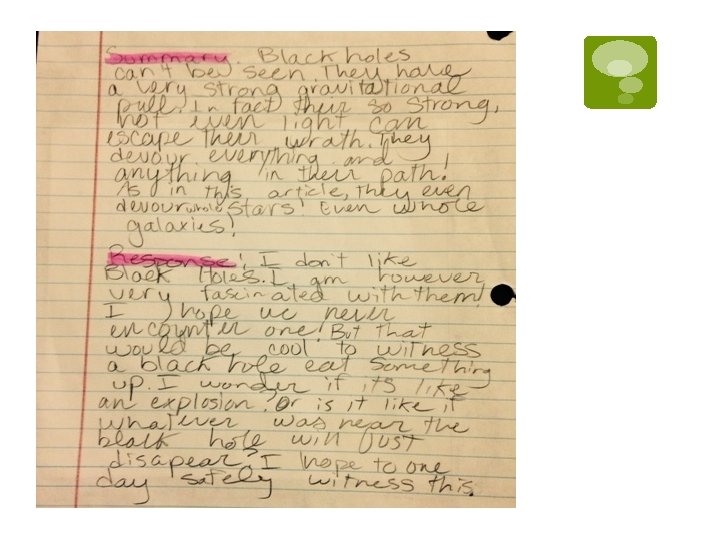 Summary. Black holes
can't be seen. They have
a very strong gravitational
pull. In fact their so strong,
not even light can
escape their wrath. They
devour everything and
anything in their path!
As in this article, they even
devour whole stars! Even whole
galaxies!
Response: I don't like
Black Holes. I am however
very fascinated with them!
I hope we never
encounter one! But that
would be cool to witness
a black hole eat something
up. I wonder if its like
an explosion? Or is it like if
whatever was near the
black hole will just
disapear? I hope to one
day safely witness this.